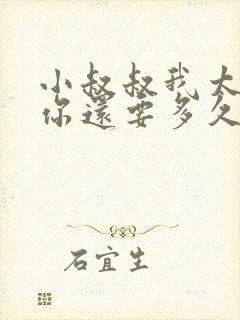 小叔叔我大
你還要多久
石宜生